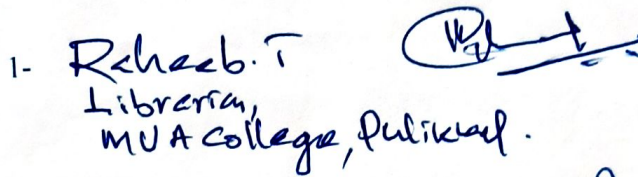 1- Raheeb. T
Librarian,
MUA College, Pulikkal.